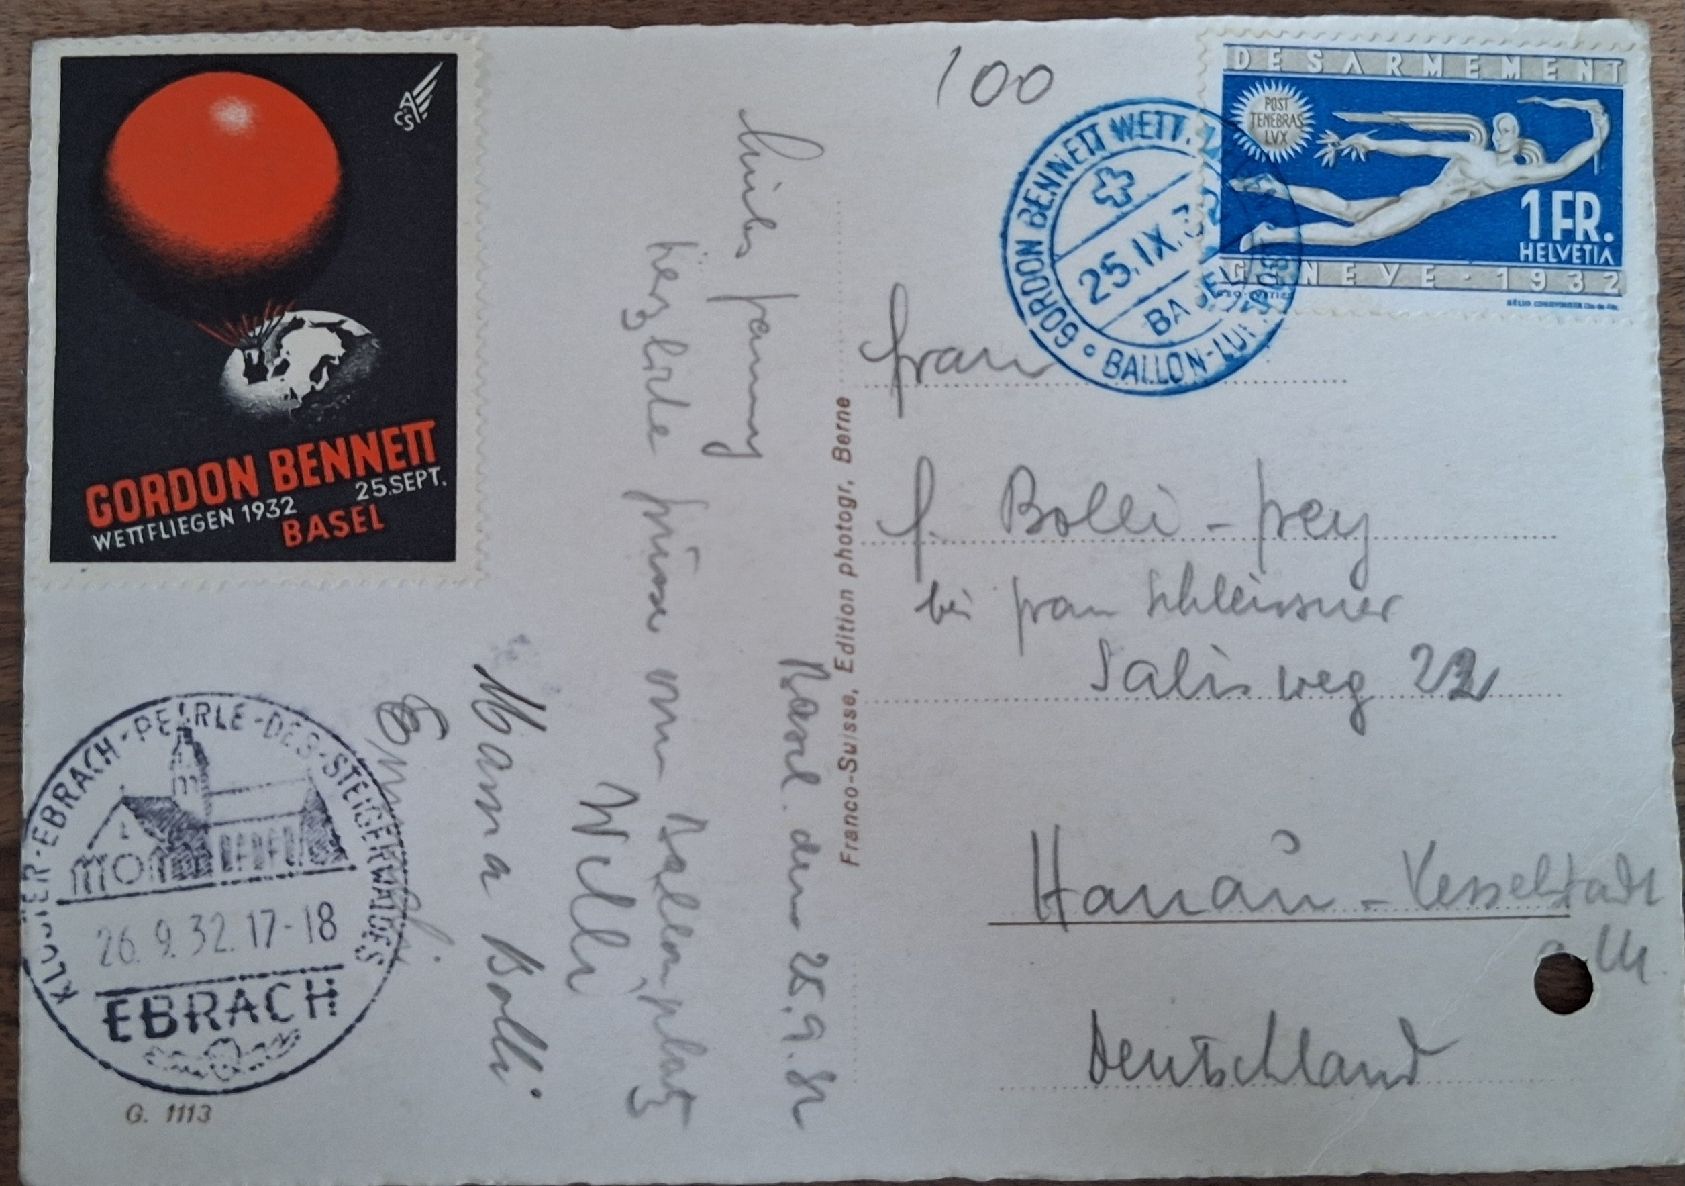 ACS
GORDON BENNETT
WETTFLIEGEN 1932 25.SEPT.
BASEL
100
GORDON BENNETT WETT.
25.IX.32
BASEL
BALLON-LUFTPOST
DESARMEMENT
POST
TENEBRAS
LVX
1 FR.
HELVETIA
GENEVE · 1932
Basel. den 25.9.32
Liebes Fanny
Herzliche Grüsse vom Ballonplatz
Willi
Mama Bolli
Franco-Suisse, Edition photogr, Berne
Frau
F. Bolli-Frey
bei Frau Schleissner
Salisweg 22
Hanau-Kesselstadt
a. M.
Deutschland
KLOSTER-EBRACH-PERLE-DES-STEIGERWALDES
26.9.32.17-18
EBRACH
G. 1113